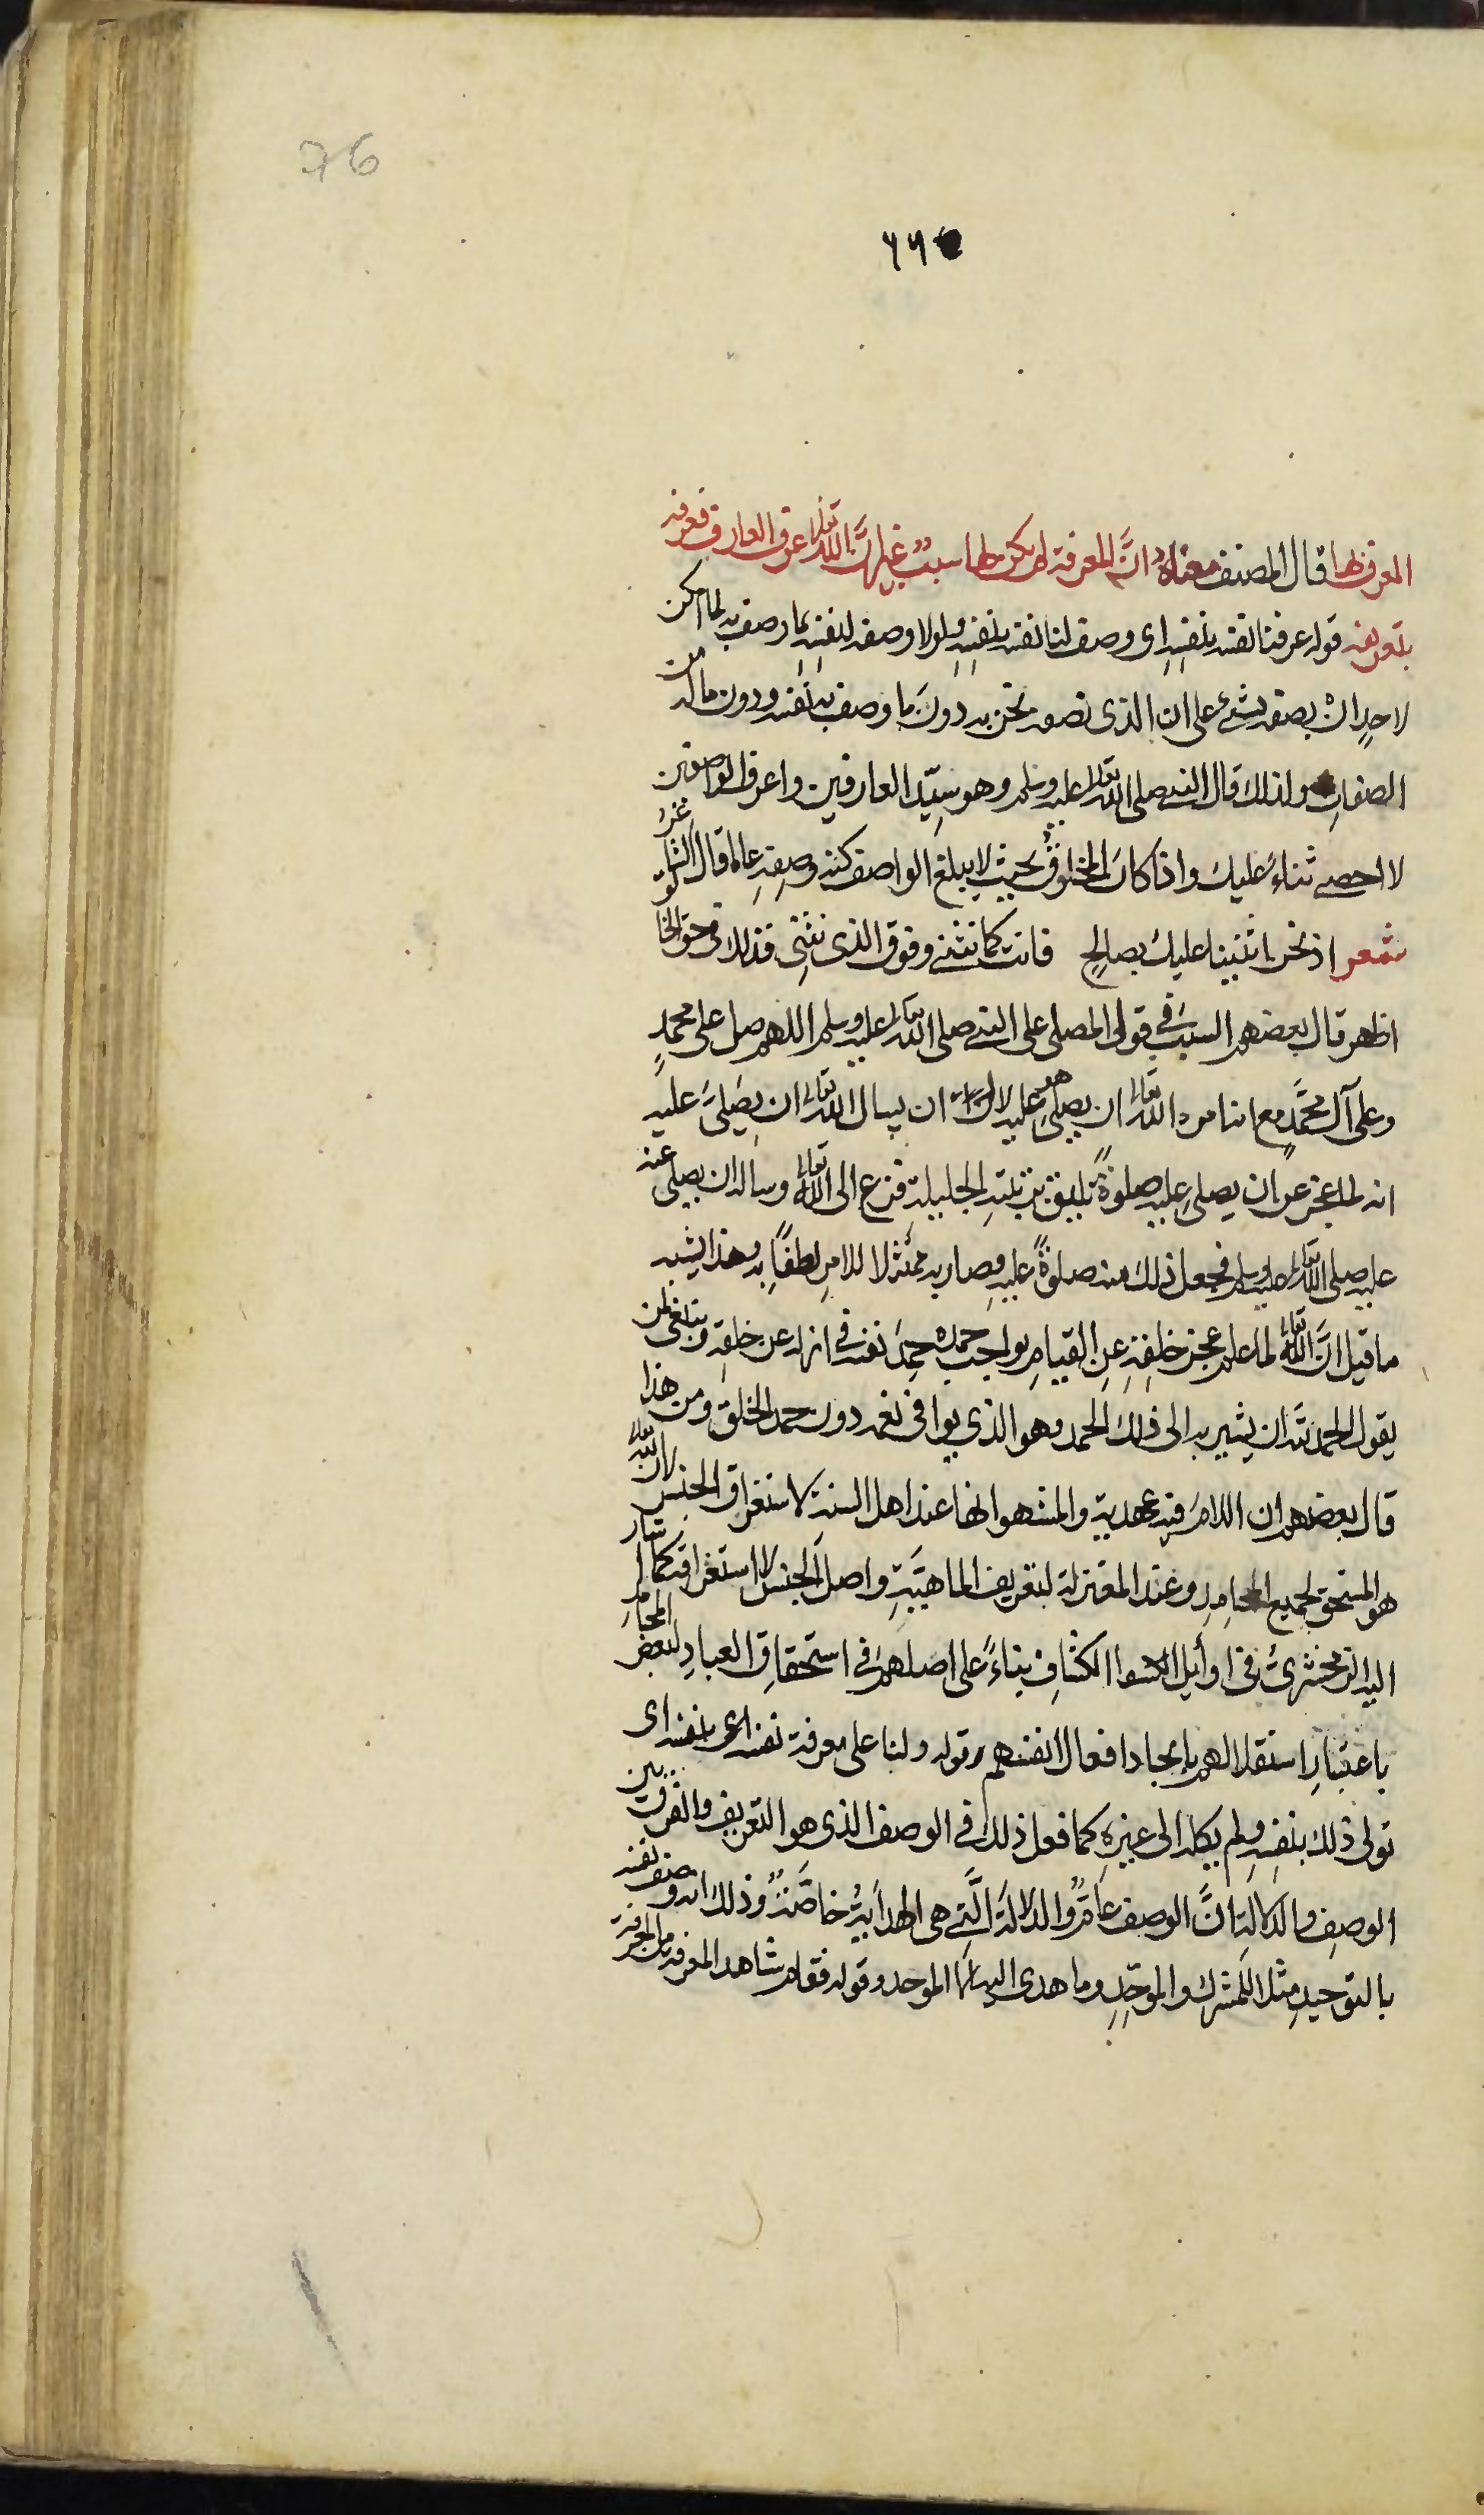 76
٦٦
المعرفة لها قال المصنف معناه ان المعرفة لم يكن لها سبب غير ان الله تعالى عرف العارف فعرفه
بتعريفه قوله عرفنا نفسه بنفسه اى وصف لنا نفسه بنفسه ولولا وصفه لنفسه بما وصف به لما امكن
لاحد ان يصفه بشئ على ان الذى نصفه نحن به دون ما وصف به نفسه ودون ماله من
الصفات ولذلك قال النبي صلى الله تعالى عليه وسلم وهو سيد العارفين واعرف الواصفين
لا احصى ثناء عليك واذا كان المخلوق بحيث لا يبلغ الواصف كنه وصفه على ما قال الشاعر
شعر اذ نحن اثنينا عليك بصالح فانت كما نثني وفوق الذى نثنى فذلك في حق الخالق
اظهر قال بعضهم السبب في قول المصلى على النبي صلى الله تعالى عليه وسلم اللهم صل على محمد
وعلى آل محمد مع انا امره الله تعالى ان يصلى هو عليه لا ان يسال الله تعالى ان يصلى عليه
انه لما عجز عن ان يصلى عليه صلوة تليق برتبته الجليلة فزع الى الله تعالى وساله ان يصلى عنه
عليه صلى الله تعالى عليه وسلم فجعل ذلك منه صلوة عليه وصار به ممتثلا للامر لطفا به وهذا يشبه
ما قيل ان الله تعالى لما علم عجز خلقه عن القيام بواجب حمده حمد نفسه في ازله عن خلقه وينبغى لمن
يقول الحمد لله ان يشير به الى ذلك الحمد وهو الذي يوافى نعمه دون حمد الخلق ومن هذا
قال بعضهم ان اللام فيه عهدية والمشهو انها عند اهل السنة لاستغراق الجنس لان الله تعالى
هو المستحق لجميع المحامد وعند المعتزلة لتعريف الماهية واصل الجنس لا استغراقه كما اشار
اليه الزمخشرى في اوايل الكشاف بناء على اصلهم في استحقاق العباد لبعض المحامد
باعتبار استقلالهم بايجاد افعال انفسهم قوله ولنا على معرفة نفسه اى بنفسه اى
تولى ذلك بنفسه ولم يكله الى غيره كما فعل ذلك في الوصف الذى هو التعريف والفرق بين
الوصف والدلالة ان الوصف عام والدلالة التي هى الهداية خاصة وذلك انه وصف نفسه
بالتوحيد مثلا للمشرك والموحد وما هدى اليه الا الموحد وقوله فقام شاهد المعرفة من المعرفة